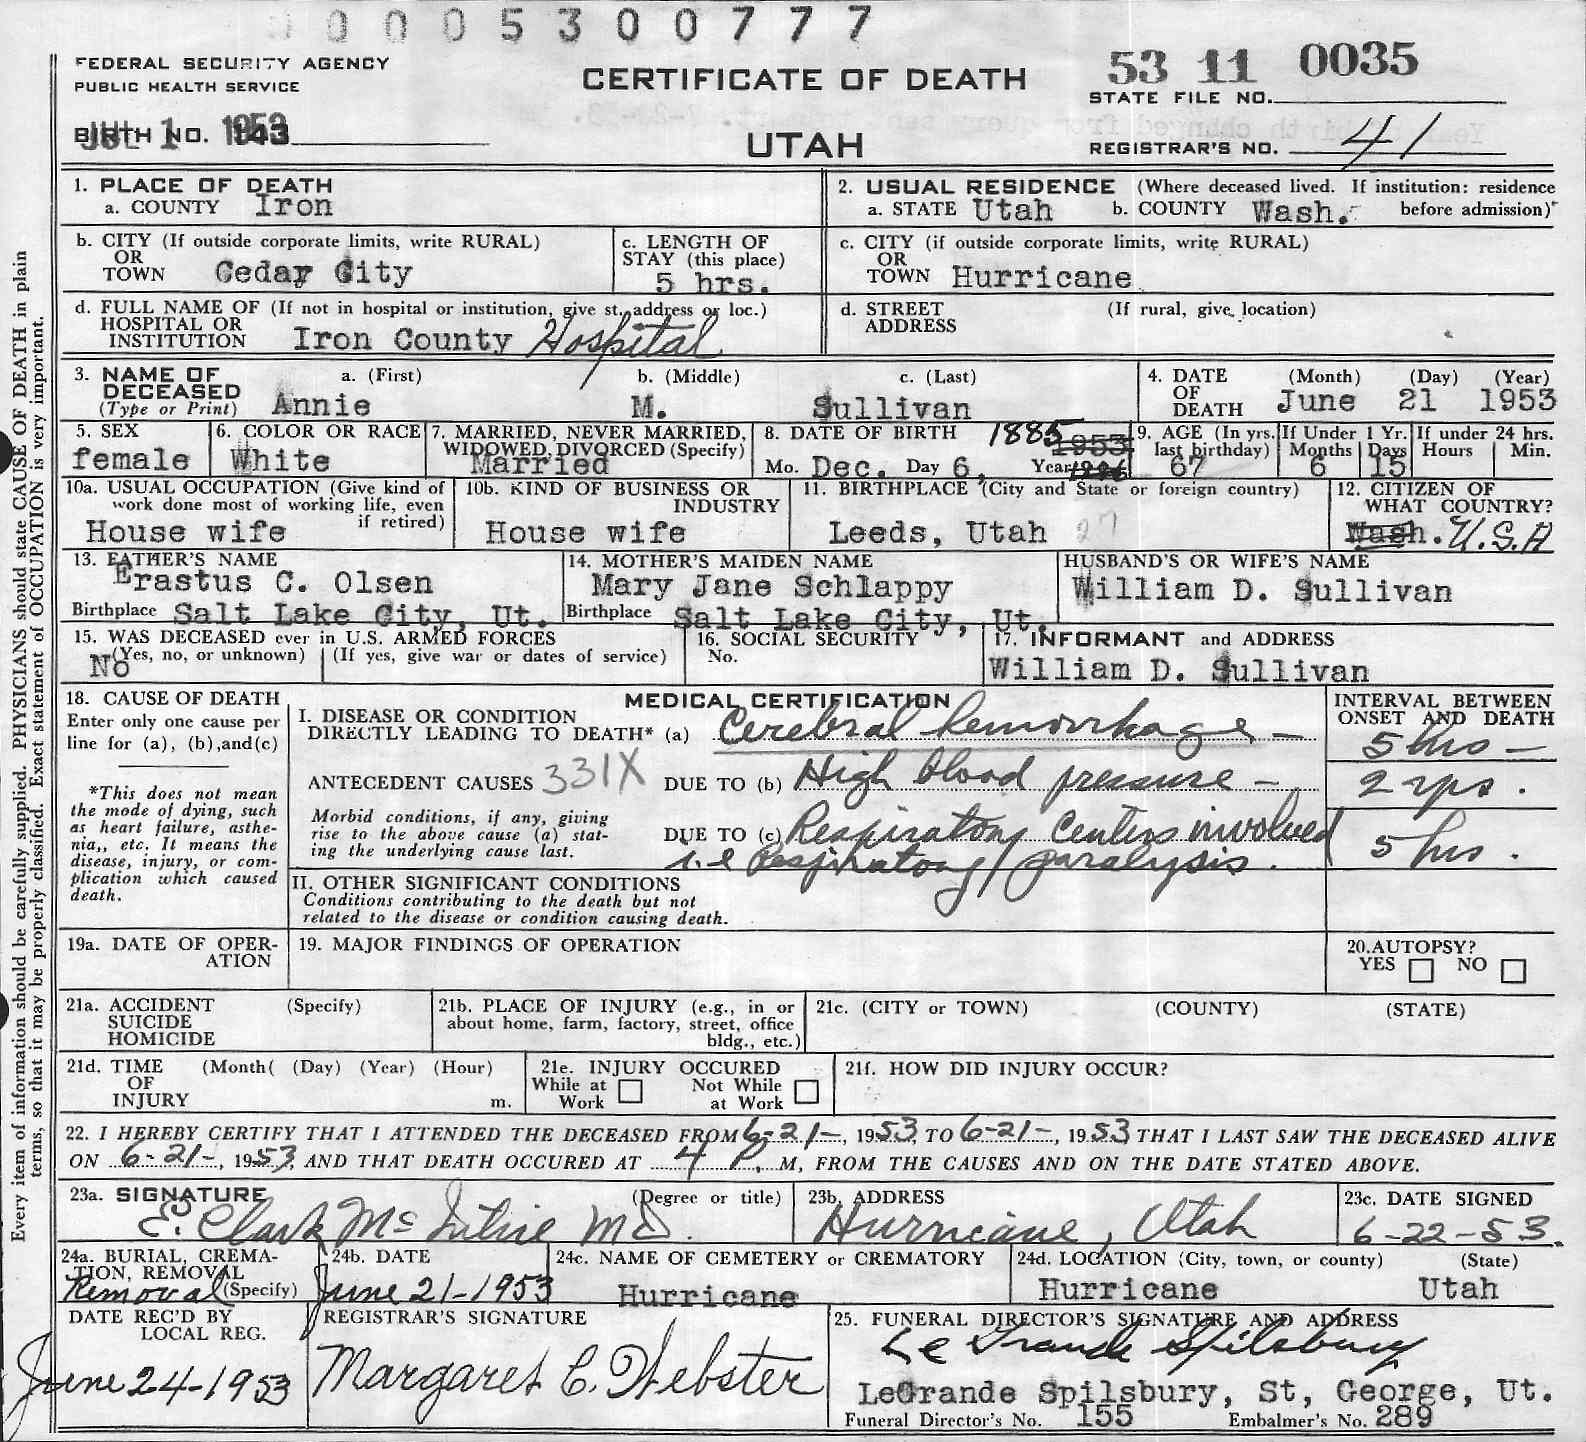 0 0 0 5 3 0 0 7 7 7
FEDERAL SECURITY AGENCY
PUBLIC HEALTH SERVICE
CERTIFICATE OF DEATH
UTAH
53 11 0035
STATE FILE NO.
BIRTH NO. 143
JUL 1 1953
REGISTRAR'S NO. 41
1. PLACE OF DEATH
a. COUNTY Iron
2. USUAL RESIDENCE (Where deceased lived. If institution: residence before admission)
a. STATE Utah b. COUNTY Wash.
b. CITY (If outside corporate limits, write RURAL)
OR
TOWN Cedar City
c. LENGTH OF
STAY (this place)
5 hrs.
c. CITY (if outside corporate limits, write RURAL)
OR
TOWN Hurricane
d. FULL NAME OF (If not in hospital or institution, give st. address or loc.)
HOSPITAL OR
INSTITUTION Iron County Hospital
d. STREET (If rural, give location)
ADDRESS
3. NAME OF
DECEASED
(Type or Print)
a. (First) b. (Middle) c. (Last)
Annie M. Sullivan
4. DATE
OF
DEATH
(Month) (Day) (Year)
June 21 1953
5. SEX
female
6. COLOR OR RACE
White
7. MARRIED, NEVER MARRIED,
WIDOWED, DIVORCED (Specify)
Married
8. DATE OF BIRTH 1885 1953
Mo. Dec. Day 6, Year
9. AGE (In yrs.
last birthday)
67
If Under 1 Yr.
Months Days
6 15
If under 24 hrs.
Hours Min.
10a. USUAL OCCUPATION (Give kind of
work done most of working life, even
if retired)
House wife
10b. KIND OF BUSINESS OR
INDUSTRY
House wife
11. BIRTHPLACE (City and State or foreign country)
Leeds, Utah 27
12. CITIZEN OF
WHAT COUNTRY?
Wash. U.S.A
13. FATHER'S NAME
Erastus C. Olsen
Birthplace Salt Lake City, Ut.
14. MOTHER'S MAIDEN NAME
Mary Jane Schlappy
Birthplace Salt Lake City, Ut.
HUSBAND'S OR WIFE'S NAME
William D. Sullivan
15. WAS DECEASED ever in U.S. ARMED FORCES
(Yes, no, or unknown) (If yes, give war or dates of service)
No
16. SOCIAL SECURITY
No.
17. INFORMANT and ADDRESS
William D. Sullivan
18. CAUSE OF DEATH
Enter only one cause per
line for (a), (b), and (c)
*This does not mean
the mode of dying, such
as heart failure, asthe-
nia,, etc. It means the
disease, injury, or com-
plication which caused
death.
MEDICAL CERTIFICATION
I. DISEASE OR CONDITION
DIRECTLY LEADING TO DEATH* (a) Cerebral hemorrhage –
ANTECEDENT CAUSES 331X DUE TO (b) High blood pressure –
Morbid conditions, if any, giving
rise to the above cause (a) stat-
ing the underlying cause last.
DUE TO (c) Respiratory Centers involved
i.e Respiratory paralysis.
INTERVAL BETWEEN
ONSET AND DEATH
5 hrs –
2 yrs.
5 hrs.
II. OTHER SIGNIFICANT CONDITIONS
Conditions contributing to the death but not
related to the disease or condition causing death.
19a. DATE OF OPER-
ATION
19. MAJOR FINDINGS OF OPERATION
20. AUTOPSY?
YES NO
21a. ACCIDENT (Specify)
SUICIDE
HOMICIDE
21b. PLACE OF INJURY (e.g., in or
about home, farm, factory, street, office
bldg., etc.)
21c. (CITY or TOWN) (COUNTY) (STATE)
21d. TIME (Month( (Day) (Year) (Hour)
OF
INJURY m.
21e. INJURY OCCURED
While at Work Not While at Work
21f. HOW DID INJURY OCCUR?
22. I HEREBY CERTIFY THAT I ATTENDED THE DECEASED FROM 6-21-, 1953, TO 6-21-, 1953 THAT I LAST SAW THE DECEASED ALIVE
ON 6-21-, 1953, AND THAT DEATH OCCURED AT 4 P. M, FROM THE CAUSES AND ON THE DATE STATED ABOVE.
23a. SIGNATURE (Degree or title)
E. Clark McIntire MD.
23b. ADDRESS
Hurricane, Utah
23c. DATE SIGNED
6-22-53.
24a. BURIAL, CREMA-
TION, REMOVAL
(Specify)
Removal
24b. DATE
June 21-1953
24c. NAME OF CEMETERY or CREMATORY
Hurricane
24d. LOCATION (City, town, or county) (State)
Hurricane Utah
DATE REC'D BY
LOCAL REG.
June 24-1953
REGISTRAR'S SIGNATURE
Margaret C. Webster
25. FUNERAL DIRECTOR'S SIGNATURE AND ADDRESS
LeGrande Spilsbury
LeGrande Spilsbury, St, George, Ut.
Funeral Director's No. 155 Embalmer's No. 289
Every item of information should be carefully supplied. PHYSICIANS should state CAUSE OF DEATH in plain
terms, so that it may be properly classified. Exact statement of OCCUPATION is very important.